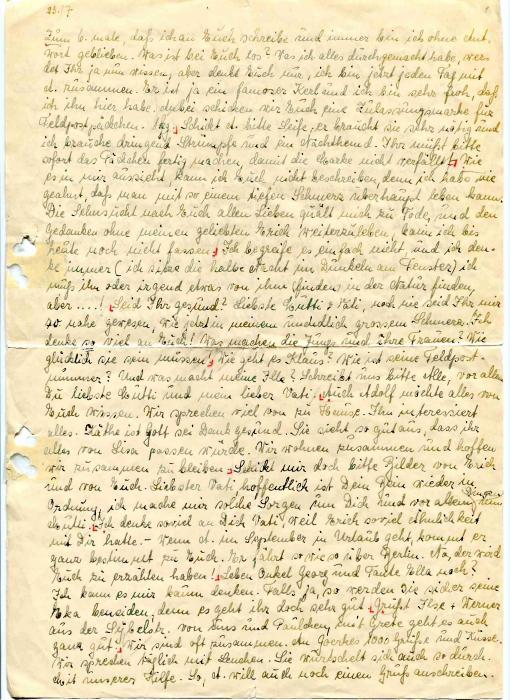 23.17
Zum 6. male, daß ich an Euch schreibe und immer bin ich ohne Ant,
wort geblieben. Was ist bei Euch los? Was ich alles durchgemacht habe, wer,
det Ihr ja nun wissen, aber denkt Euch nur, ich bin jetzt jeden Tag mit
A. zusammen. Er ist ja ein famoser Kerl und ich bin sehr froh, daß
ich ihn hier habe. Anbei schicken wir Euch eine Zulassungsmarke für
Feldpostpäckchen. Schickt A. bitte Seife, er braucht sie sehr nötig und
ich brauche dringend Strümpfe und ein Nachthemd. Ihr müßt bitte
sofort das Päckchen fertig machen, damit die Marke nicht verfällt. Wie
es in mir aussieht kann ich Euch nicht beschreiben, denn ich habe nie
geahnt, daß man mit so einem tiefen Schmerz überhaupt leben kann.
Die Sehnsucht nach Euch allen Lieben quält mich zu Tode, und den
Gedanken ohne meinen geliebten Erich weiterzuleben, kann ich bis
heute noch nicht fassen. Ich begreife es einfach nicht, und ich den-
ke immer (ich sitze die halbe Nacht im Dunkeln am Fenster) ich
muß ihn oder irgend etwas von ihm finden, in der Natur finden,
aber ....! Seid Ihr gesund? Liebste Mutti & Vati, noch nie seid Ihr mir
so nahe gewesen, wie jetzt in meinem unendlich grossem Schmerz. Ich
denke so viel an Erich! Was machen die Jungs und ihre Frauen? Wie
glücklich sie sein müssen. Wie geht es Klaus? Wie ist seine Feldpost-
nummer? Und was macht meine Ille? Schreibt uns bitte Alle, vor allem
Du liebste Mutti und mein lieber Vati. Auch Adolf möchte alles von
Euch wissen. Wir sprechen viel von zu Hause. Ihn interessiert
alles. Käthe ist Gott sei Dank gesund. Sie sieht so gut aus, dass ihr
alles von Lisa passen würde. Wir wohnen zusammen und hoffen
wir zusammen zu bleiben. Schickt mir doch bitte Bilder von Erich
und von Euch. Liebster Vati hoffentlich ist Dein Bein wieder in
Ordnung, ich mache mir solche Sorgen um Dich und vor allem um
Mutti. Ich denke soviel an Dich Vati, weil Erich soviel Ähnlichkeit
mit Dir hatte. – Wenn A. im September in Urlaub geht, kommt er
ganz bestimmt zu Euch. Er fährt so wie so über Berlin. Na, der wird
Euch zu erzählen haben! Leben Onkel Georg und Tante Ella noch?
Ich kann es mir kaum denken. Falls ja, so werden sie sicher seine
beneiden, denn es geht ihr doch sehr gut. Grüßt Ilse + Werner
aus der Sybelstr. von uns und Paulchen mit Grete geht es auch
ganz gut. Wir sind oft zusammen. An Goerkes 1000 Grüße und Küsse.
Wir sprechen täglich mit Lenchen. Sie wurschtelt sich auch so durch.
Mit unserer Hilfe. So, A. will auch noch einen Gruß anschreiben.